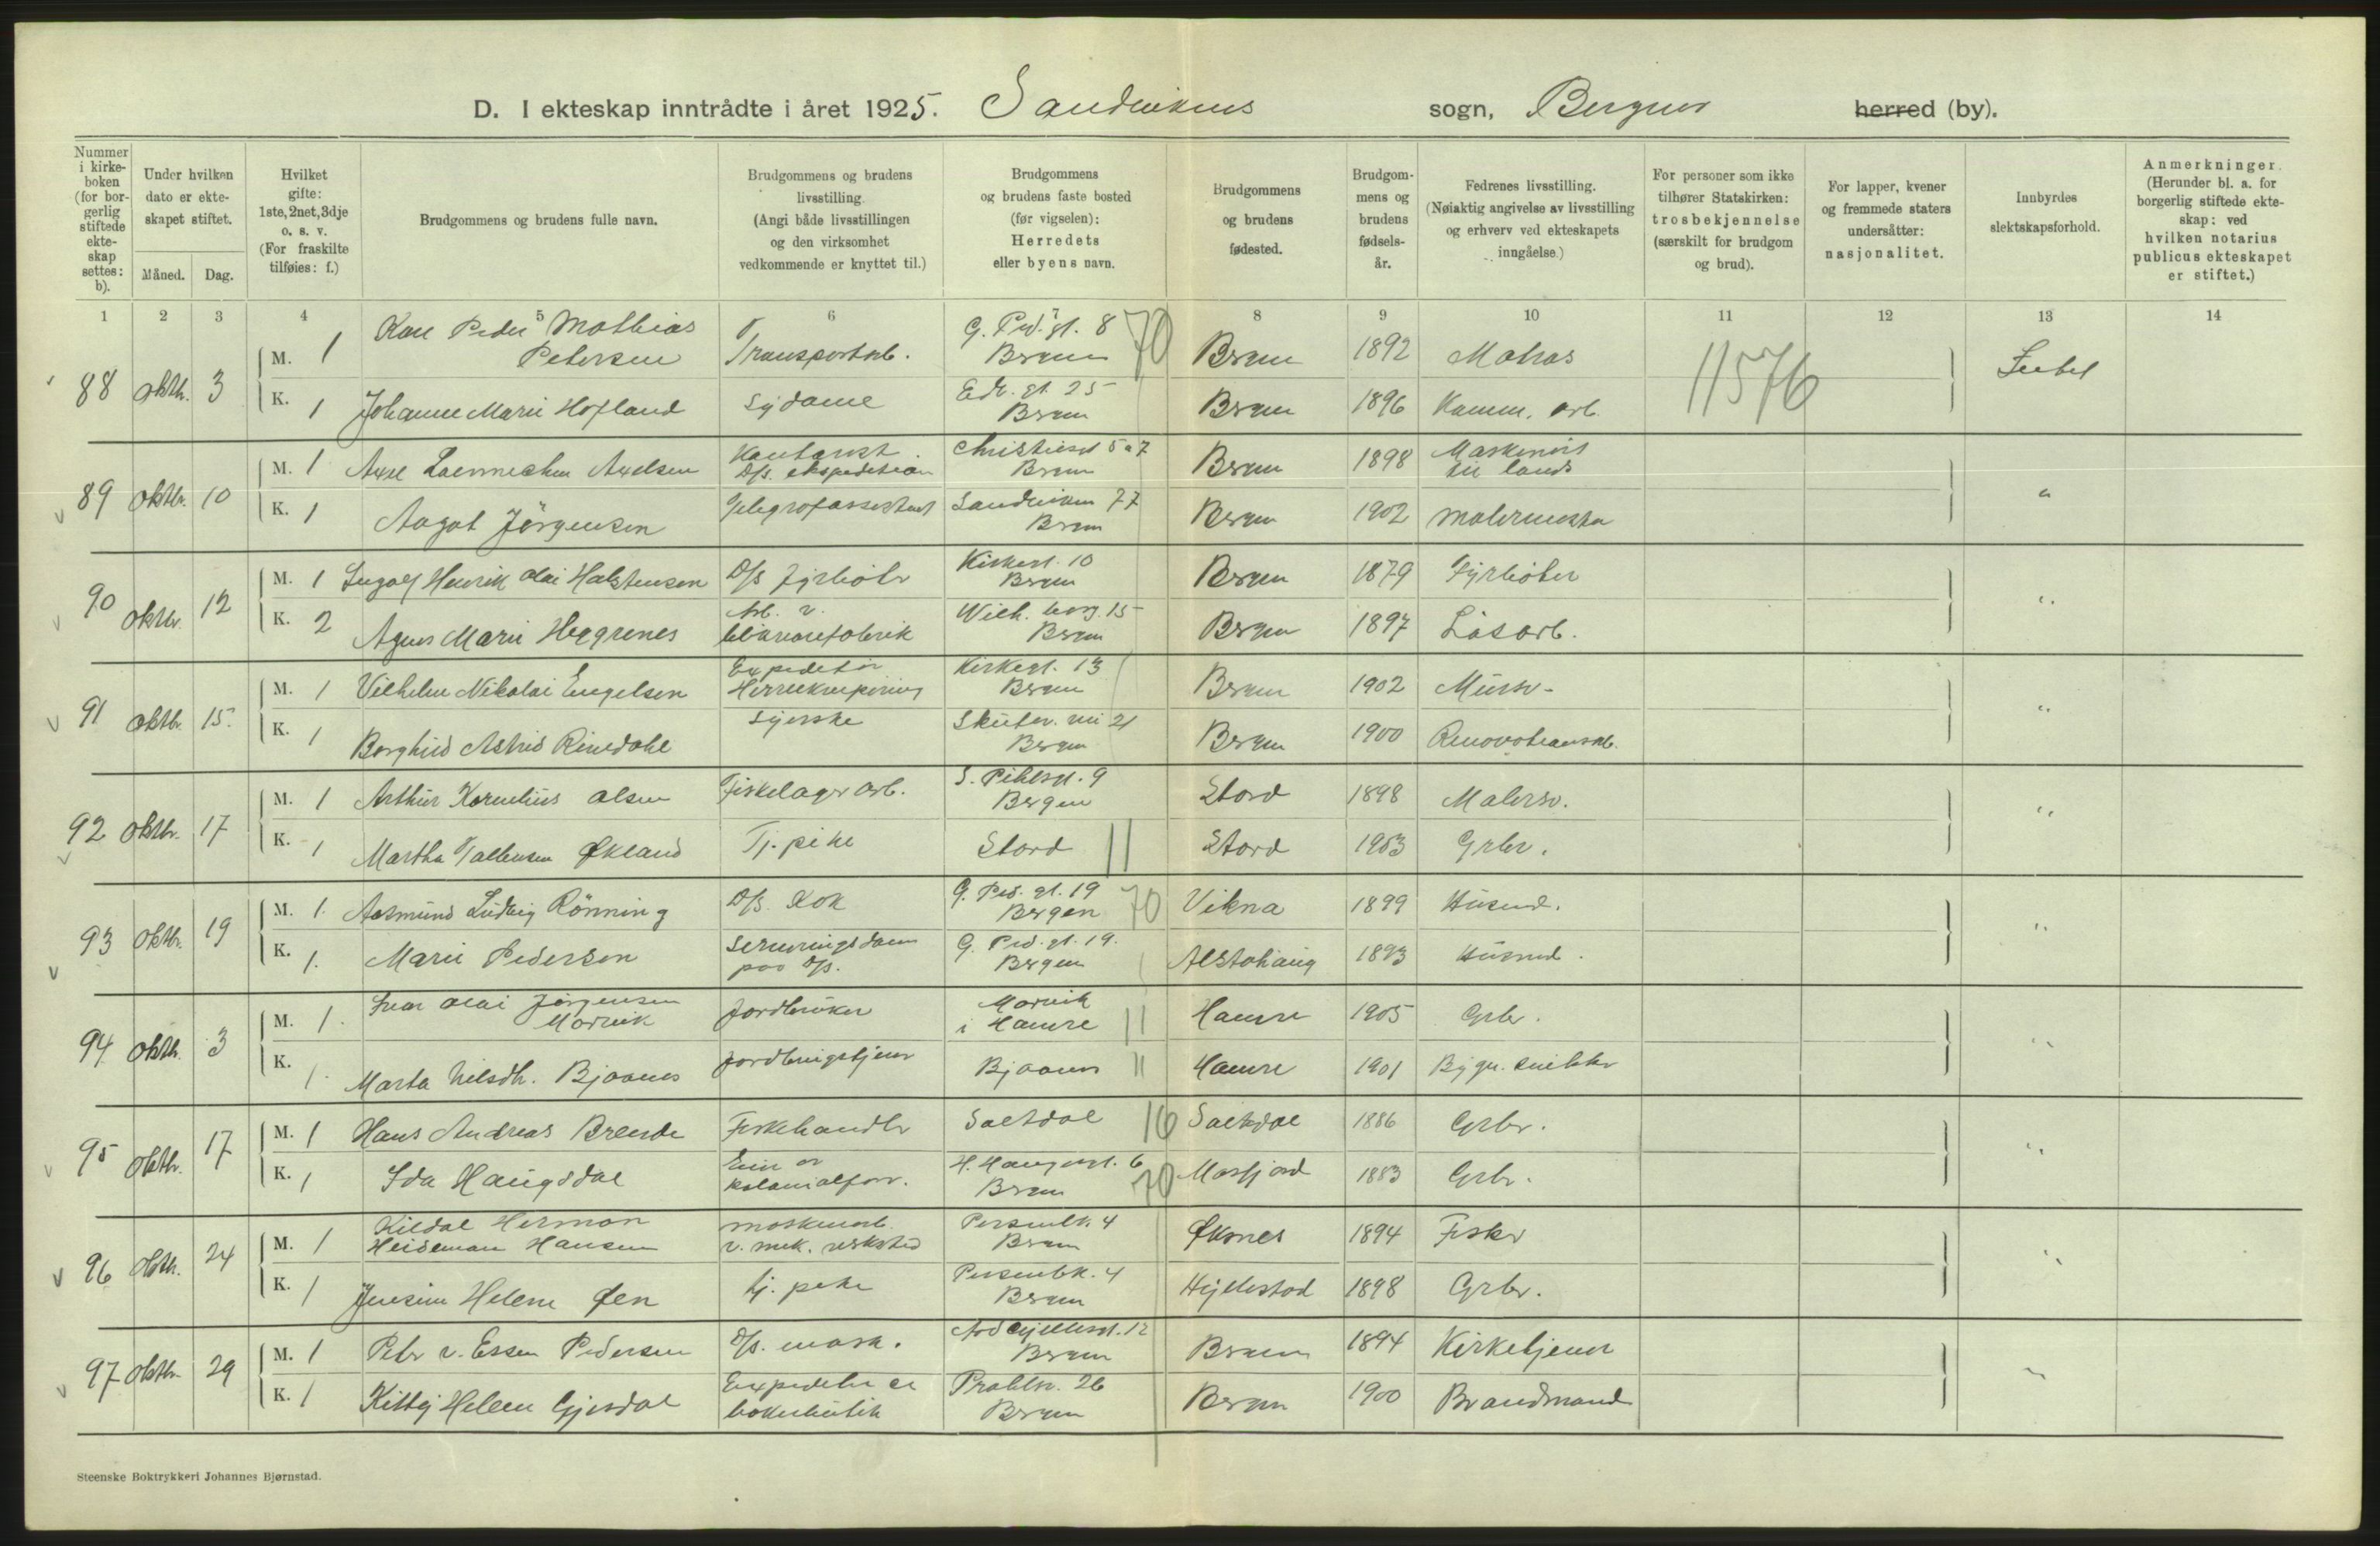 D. I ekteskap inntrådte i året 1925. Sandvikens sogn, Bergens herred (by).
Nummer i kirkeboken (for borgerlig stiftede ekteskap settes: b).
Under hvilken dato er ekteskapet stiftet.
Måned. Dag.
Hvilket gifte: 1ste, 2net, 3dje o. s. v. (For fraskilte tilføies: f.)
Brudgommens og brudens fulle navn.
Brudgommens og brudens livsstilling. (Angi både livsstillingen og den virksomhet vedkommende er knyttet til.)
Brudgommens og brudens faste bosted (før vigselen): Herredets eller byens navn.
Brudgommens og brudens fødested.
Brudgommens og brudens fødsels-år.
Fedrenes livsstilling. (Nøiaktig angivelse av livsstilling og erhverv ved ekteskapets inngåelse.)
For personer som ikke tilhører Statskirken: trosbekjennelse (særskilt for brudgom og brud).
For lapper, kvener og fremmede staters undersåtter: nasjonalitet.
Innbyrdes slektskapsforhold.
Anmerkninger. (Herunder bl. a. for borgerlig stiftede ekteskap: ved hvilken notarius publicus ekteskapet er stiftet.)
1 2 3 4 5 6 7 8 9 10 11 12 13 14
88 oktbr. 3 M. 1 Peder Mathias Petersen Transportarb. G. Ped. gt. 8 Bergen 70 Bergen 1892 Matros 11576
K. 1 Johanne Marie Hofland Sydame Bergen Bergen 1896 Komm. arb.
89 oktbr. 10 M. 1 Axelsen Kontorist D/s. ekspedition Christiesgt 5 a 7 Bergen Bergen 1898 Maskinist til lands "
K. 1 Aagot Jörgensen Telegrafassistent Sandviken 77 Bergen Bergen 1902 Malermester
90 oktbr. 12 M. 1 Ingolf Henrik Olai Halstensen D/s fyrböter Kirkegt. 10 Bergen Bergen 1879 Fyrböter "
K. 2 Agnes Marie Heggrenes Arb. v. blikvarefabrik Bergen Bergen 1897 Lösarb.
91 oktbr. 15. M. 1 Vilhelm Nikolai Engelsen Expeditör Herreekvipering Kirkegt. 13 Bergen Bergen 1902 Mursv. "
K. 1 Borghild Astrid Rinedahl Syerske Skutev. vei 21 Bergen Bergen 1900 Renovationsarb.
92 oktbr. 17 M. 1 Arthur Kornelius Olsen Fiskelager arb. S. Pihlsgt. 9 Bergen Stord 1898 Malersv. "
K. 1 Martha Økland Tj. pike Stord 11 Stord 1903 Grbr.
93 oktbr. 19 M. 1. Aasmund Ludvig Rönning D/s. Kok G. Ped. gt. 19 Bergen 70 Vikna 1899 Husmd. "
K. 1. Marie Pedersen Serveringsdame paa D/s. G. Ped. gt. 19. Bergen Alstahaug 1893 Husmd.
94 oktbr. 3 M. 1. Ivar Olai Jörgensen Morvik Jordbruker Morvik i Hamre 11 Hamre 1905 Grbr. "
K. 1. Marta Nilsdtr. Bjaanes 11 Hamre 1901 Bygn. snekker
95 oktbr. 17 M. 1 Hans Andreas Brende Fiskehandler Saltdal 16 Saltdal 1886 Grbr. "
K. 1 Ida Haugsdal Eier av kolonialforr. Bergen 70 Masfjord 1883 Grbr.
96 oktbr. 24 M. 1 Kildal Herman Heideman Hansen maskinarb. v. mek. verksted Persenbk. 4 Bergen Øksnes 1894 Fisker "
K. 1 Jensine Helene Øen tj. pike Persenbk. 4 Bergen Hyllestad 1898 Grbr.
97 oktbr. 29 M. 1 Peter v. Essen Pedersen D/s. mask. Bergen Bergen 1894 Kirketjener "
K. 1 Kitty Helene Gjesdal Bergen Bergen 1900 Brandmand
Steenske Boktrykkeri Johannes Bjørnstad.